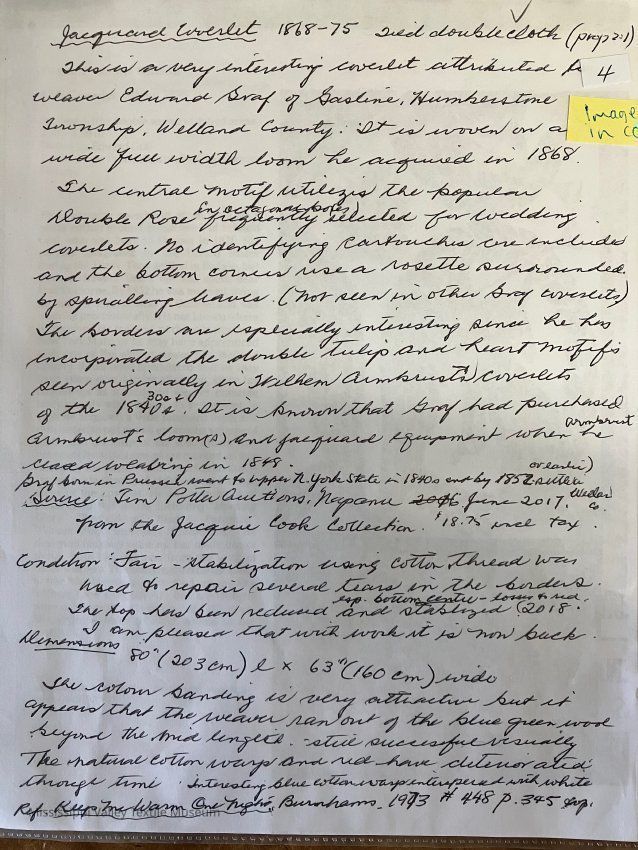 Jacquard Coverlet 1868-75 Tied doublecloth (prop 2:1)
4
This is a very interesting coverlet attributed to
weaver Edward Graf of Gasline, Humberstone
Image
in CC
Township, Welland County. It is woven on a
wide full width loom he acquired in 1868.
The central motif utilizes the popular
in octagonal boxes)
Double Rose frequently selected for wedding
coverlets. No identifying cartouches are included
and the bottom corners use a rosette surrounded
by spiralling leaves. (not seen in other Graf coverlets)
The borders are especially interesting since he has
incorporated the double tulip and heart motifs
seen originally in Wilhem Armbrust's coverlets
30s +
of the 1840s. It is known that Graf had purchased
Armbrust
Armbrust's loom(s) and jacquard equipment when he
ceased weaving in 1848.
or earlier)
Graf born in Prussia went to upper N. York State in 1840s and by 1852
Source: Jim Potter Auctions, Napanee June 2017.
from the Jacquie Cook Collection. $18.75 incl tax.
Condition: Fair - stabilization using cotton thread was
used to repair several tears in the borders.
esp. bottom centre - lower + red.
The top has been reduced and stablized (2018.
I am pleased that with work it is now back.
Dimensions 80" (203 cm) l x 63" (160 cm) wide
The colour banding is very attractive but it
appears that the weaver ran out of the blue green wool
beyond the mid length. - still successful visually
The natural cotton warps and red have deteriorated
through time. Interesting blue cotton warp interspersed with white
Ref. Keep Me Warm One Night, Burnhams. 1973 # 448 p. 345
Mississippi Valley Textile Museum